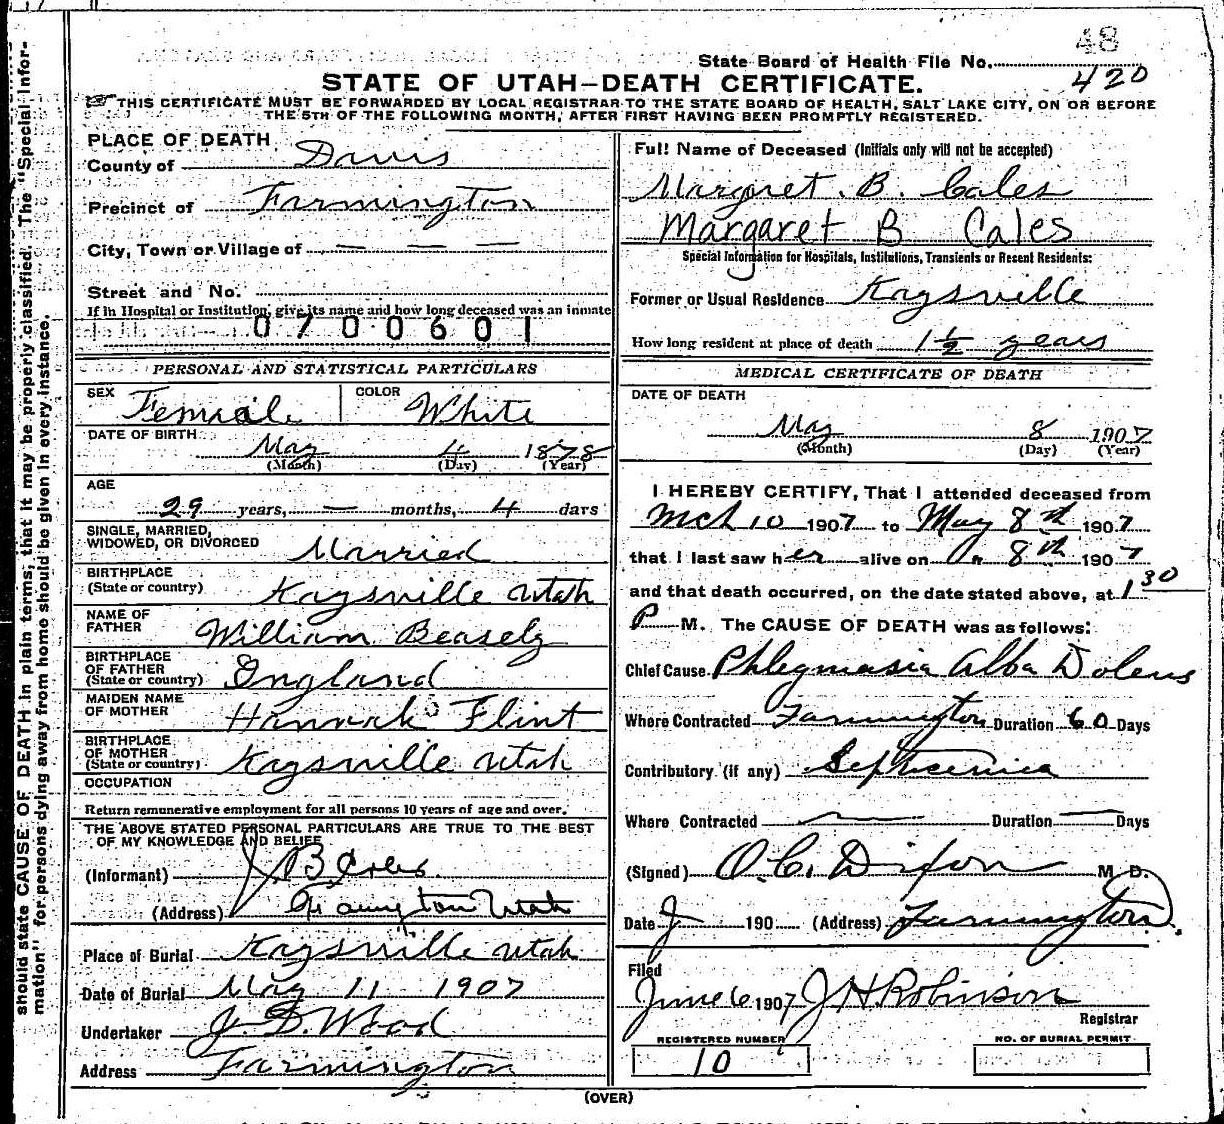 48
State Board of Health File No. 420
STATE OF UTAH—DEATH CERTIFICATE.
THIS CERTIFICATE MUST BE FORWARDED BY LOCAL REGISTRAR TO THE STATE BOARD OF HEALTH, SALT LAKE CITY, ON OR BEFORE
THE 5TH OF THE FOLLOWING MONTH, AFTER FIRST HAVING BEEN PROMPTLY REGISTERED.
should state CAUSE OF DEATH in plain terms; that it may be properly classified. The "Special Infor-
mation" for persons dying away from home should be given in every instance.
PLACE OF DEATH
County of Davis
Precinct of Farmington
City, Town or Village of — — —
Street and No.
If in Hospital or Institution, give its name and how long deceased was an inmate
0700601
PERSONAL AND STATISTICAL PARTICULARS
SEX Female COLOR White
DATE OF BIRTH May 4 1878
(Month) (Day) (Year)
AGE
29 years, — months, 4 days
SINGLE, MARRIED,
WIDOWED, OR DIVORCED Married
BIRTHPLACE
(State or country) Kaysville Utah
NAME OF
FATHER William Beasely
BIRTHPLACE
OF FATHER
(State or country) England
MAIDEN NAME
OF MOTHER Hannah Flint
BIRTHPLACE
OF MOTHER
(State or country) Kaysville Utah
OCCUPATION
Return remunerative employment for all persons 10 years of age and over.
THE ABOVE STATED PERSONAL PARTICULARS ARE TRUE TO THE BEST
OF MY KNOWLEDGE AND BELIEF
(Informant) J B Coles
(Address) Farmington Utah
Place of Burial Kaysville Utah
Date of Burial May 11 1907
Undertaker J. D. Wood
Address Farmington
Full Name of Deceased (Initials only will not be accepted)
Margret. B. Cales
Margaret B Cales
Special Information for Hospitals, Institutions, Transients or Resent Residents:
Former or Usual Residence Kaysville
How long resident at place of death 1½ years
MEDICAL CERTIFICATE OF DEATH
DATE OF DEATH
May 8 1907
(Month) (Day) (Year)
I HEREBY CERTIFY, That I attended deceased from
Mch 10 1907 to May 8th 1907
that I last saw her alive on 8th 1907
and that death occurred, on the date stated above, at 1 30
P M. The CAUSE OF DEATH was as follows:
Chief Cause Phlegmasia Alba Dolens
Where Contracted Farmington Duration 60 Days
Contributory (if any) Septicemia
Where Contracted — Duration — Days
(Signed) O. C. Dixon M. D.
Date J 190 (Address) Farmington.
Filed
June 6 1907 J H Robinson
Registrar
REGISTERED NUMBER
10
NO. OF BURIAL PERMIT
(OVER)